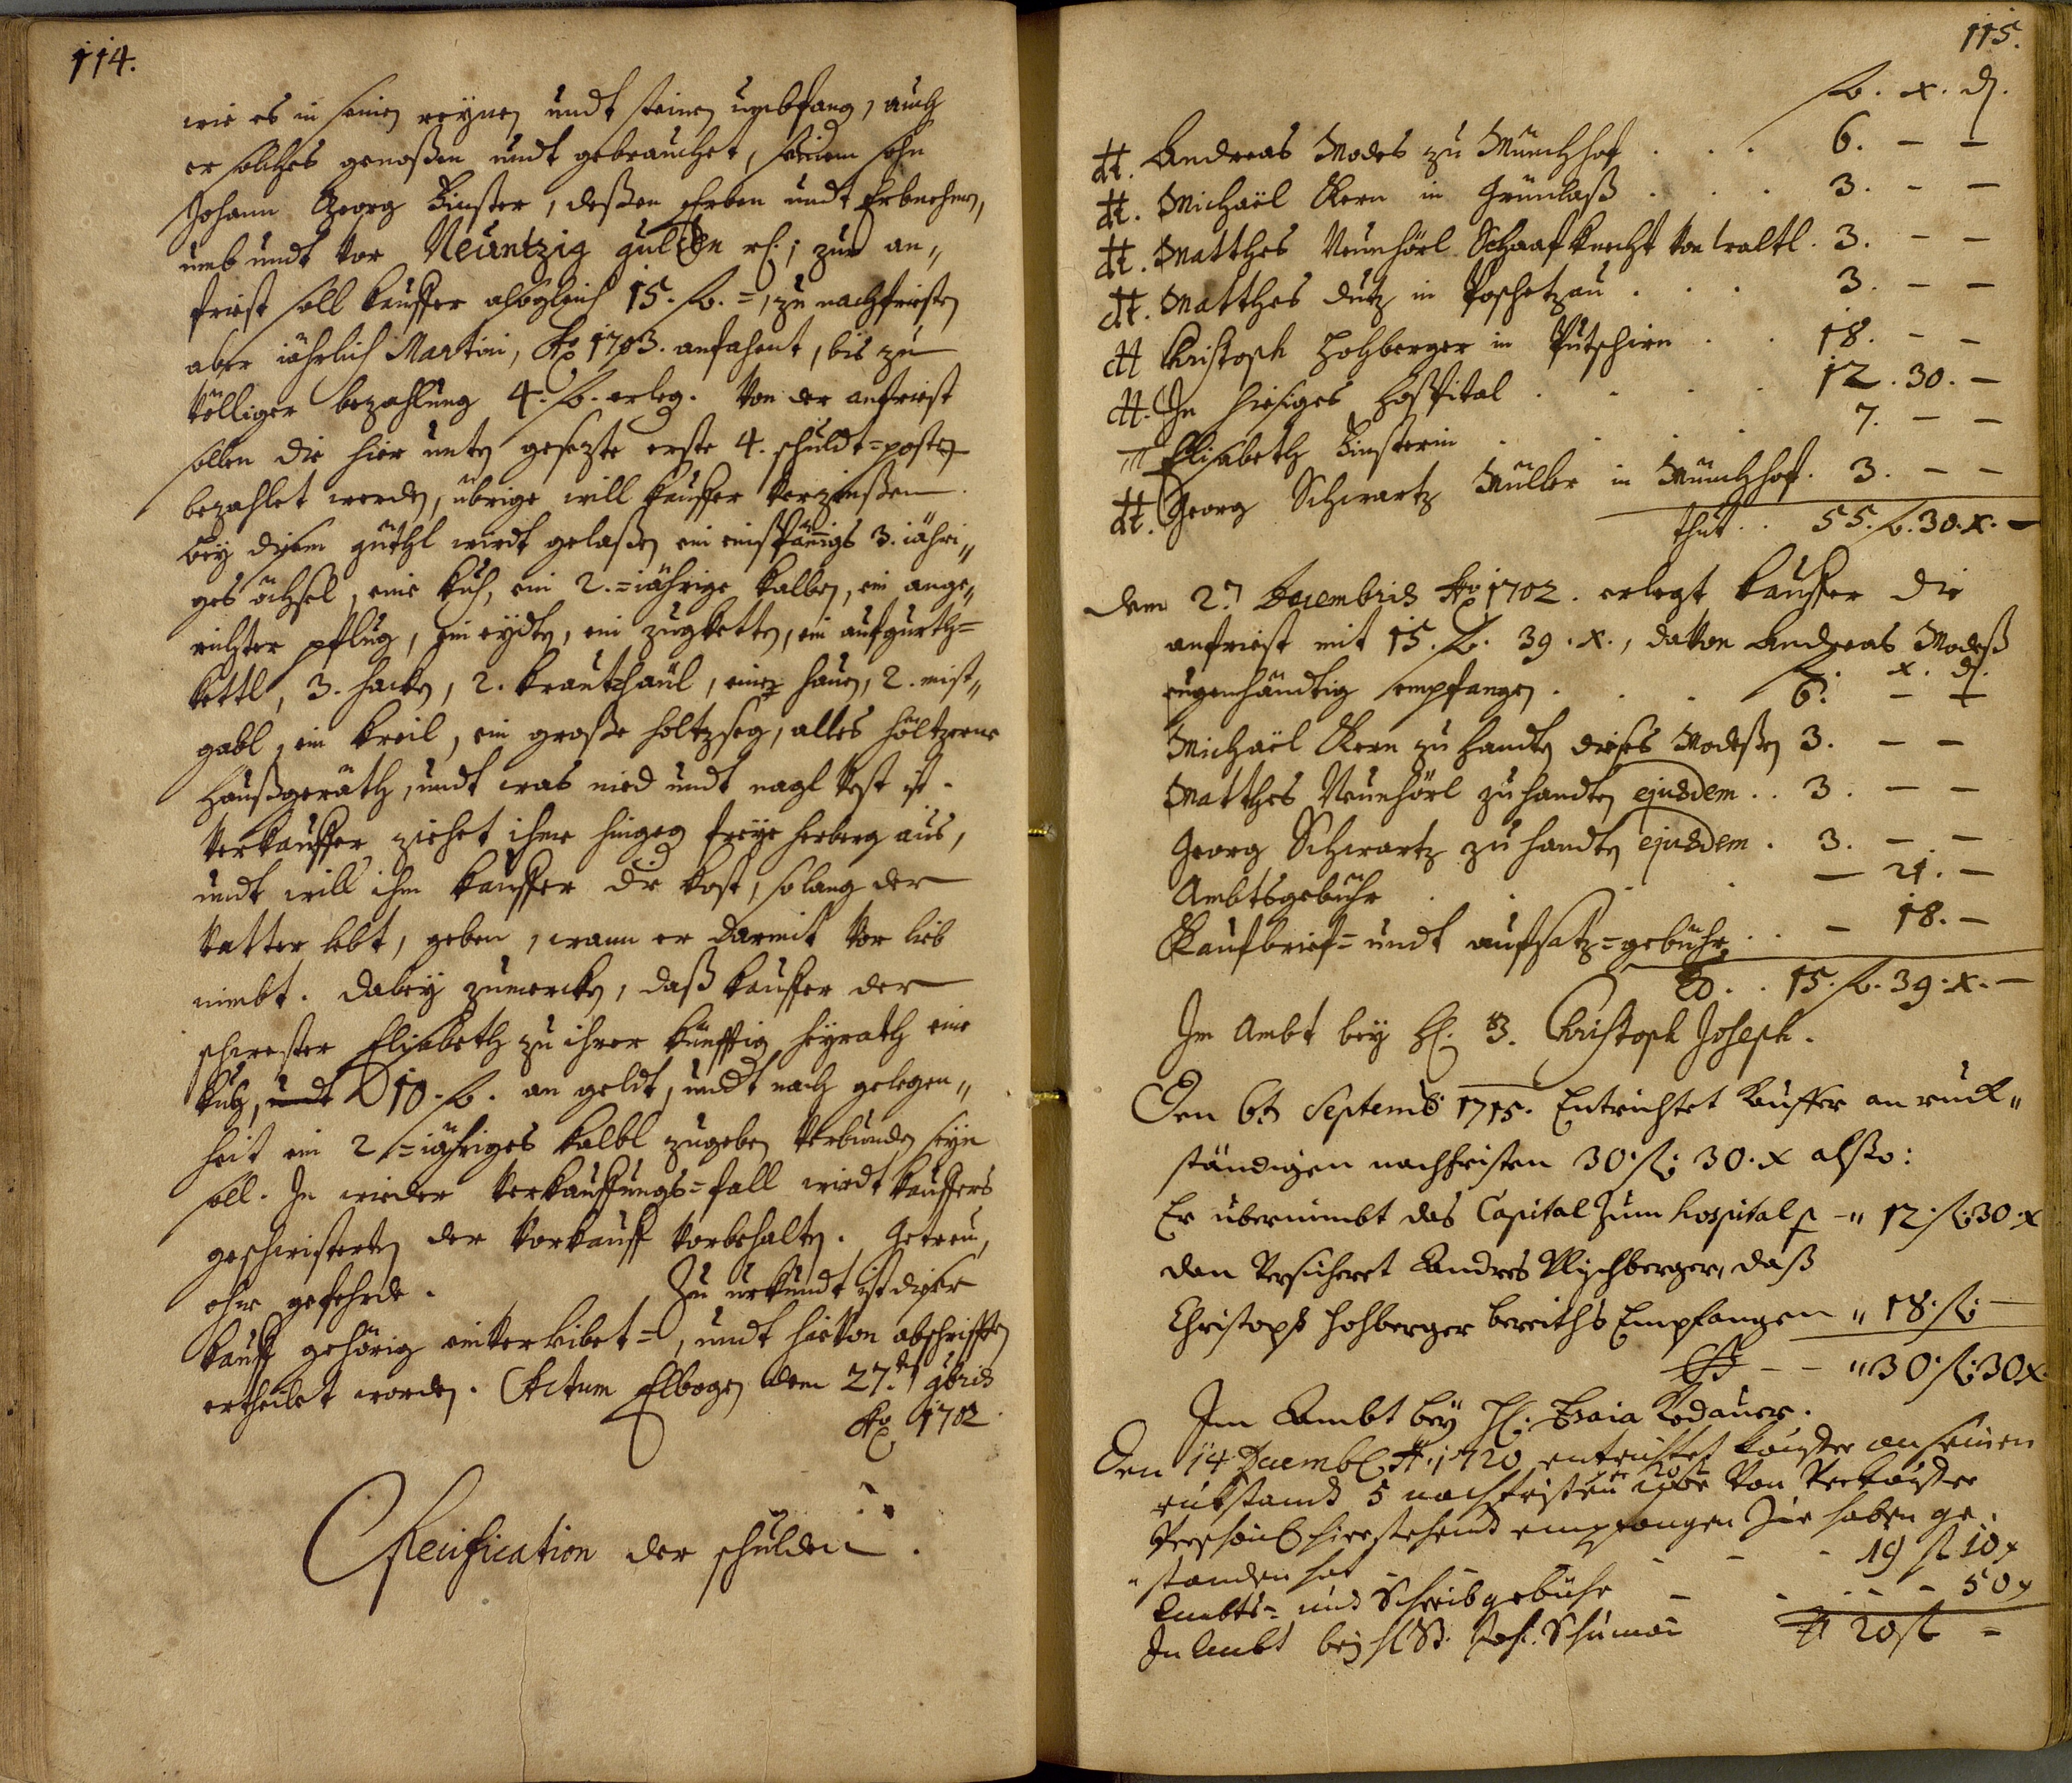 114.
wie es in seinen reynen undt steinen umbfang, auch
er solches genoßen undt gebrauchet, seinem sohn
Johann Georg Kinster, deßen Erben undt Erbnehmen,
umb undt vor Neüntzig gulden rh.; zur an„
friest soll kauffer alsogleich 15. fl. =, zu nachfriesten
aber jährlich Martini, Ao 1703. anfahent, bis zu
völliger bezahlung 4. fl. erleg. Von der anfriest
sollen die hier unten gesezte erste 4. schuldt=posten
bezahlet werden, übrige will kauffer verzinßen.
bey diesem güthl wirdt gelaßen ein einspännigs 3. jähri„
ges öchsel, eine kuh, ein 2.=jährige kalben, ein ange„
richter pflug, ein eydten, ein zugketten, ein aufgürth=
kettl, 3. hacken, 2. krauthäül, eine hauen, 2. mist„
gabl, ein kreil, ein große holtzseg, alles höltzerne
haußgeräth, undt was nied undt nagl vest ist.
Verkauffer ziehet ihme hingegen freye herberg aus,
undt will ihm kauffer die kost, solang der
vatter lebt, geben, wann er darmit vor lieb
nimbt. dabey zumercken, daß kauffer der
schwester Elisabeth zu ihrer künfftig heyrath eine
kuh, undt 10. fl. an geldt, undt nach gelegen„
heit ein 2.=jähriges kalbl zugeben verbunden seyn
soll. In wieder verkauffungs=fall wirdt kauffers
geschwisterten der vorkauff vorbehalten. Getreu,
ohne gefehrde. Zu urkundt ist dieser
kauff gehörig einverleibet=, undt hievon abschrifften
ertheilet worden. Actum Elbogen dem 27.ten 9bris
Ao 1702.
Specification der schulden.
115.
fl. x. d.
dt. Andreas Modes zu Münchhof . . . 6. — —
dt. Michaël Kern in Grünlaß . . . 3. — —
dt. Matthes Neunhörl Schaafknecht von 3. — —
dt. Matthes Dutz in Poschetzau . . . 3. — —
dt Christoph Holzberger in Putschirn . . 18. — —
dt. In hiesiges Hospital . . . . 12. 30. —
Elisabeth Kinsterin . . . . 7. — —
dt. Georg Schwartz Müller in Münchhof. 3. — —
thut . . 55. fl. 30. x. —
dem 2.ten Decembris Ao 1702. erlegt kauffer die
anfriest mit 15. fl. 39. x., davon Andreas Modeß
fl. x. d.
eugenhändtig empfangen . . . 6. — —
Michaël Kern zu handten dieses Modeßen 3. — —
Matthes Neunhörl zu handten ejusdem . . 3. — —
Georg Schwartz zu handten ejusdem . 3. — —
Ambtsgebühr . . . . — 21. —
Kaufbrief= undt aufsatz=gebühr . . — 18. —
15. fl. 39. x. —
Im Ambt bey H. B. Christoph Joseph.
Den 6t Septemb 1715. Entrichtet kauffer an ruck„
ständigen nachfristen 30. fl: 30. x alßo:
Er übernimbt das Capital zum hospital p —„ 12: fl: 30. x
dan versicheret Andres daß
Christoph hohberger bereiths Empfangen „ 18: fl: —
— — „ 30: fl: 30 x.
Im Ambt bey H: Esaia
Den 14 Decemb. A. 1720 entrichtet kauffer an seinen
rukstandt 5 nachfristen von verkauffer
hierstehend empfangen zu haben ge„
„standen hat — — 19 fl 10 x
Ambts= und Schreibgebühr — . . . — 50 x
In Ambt bey H. Joh. 20 fl —